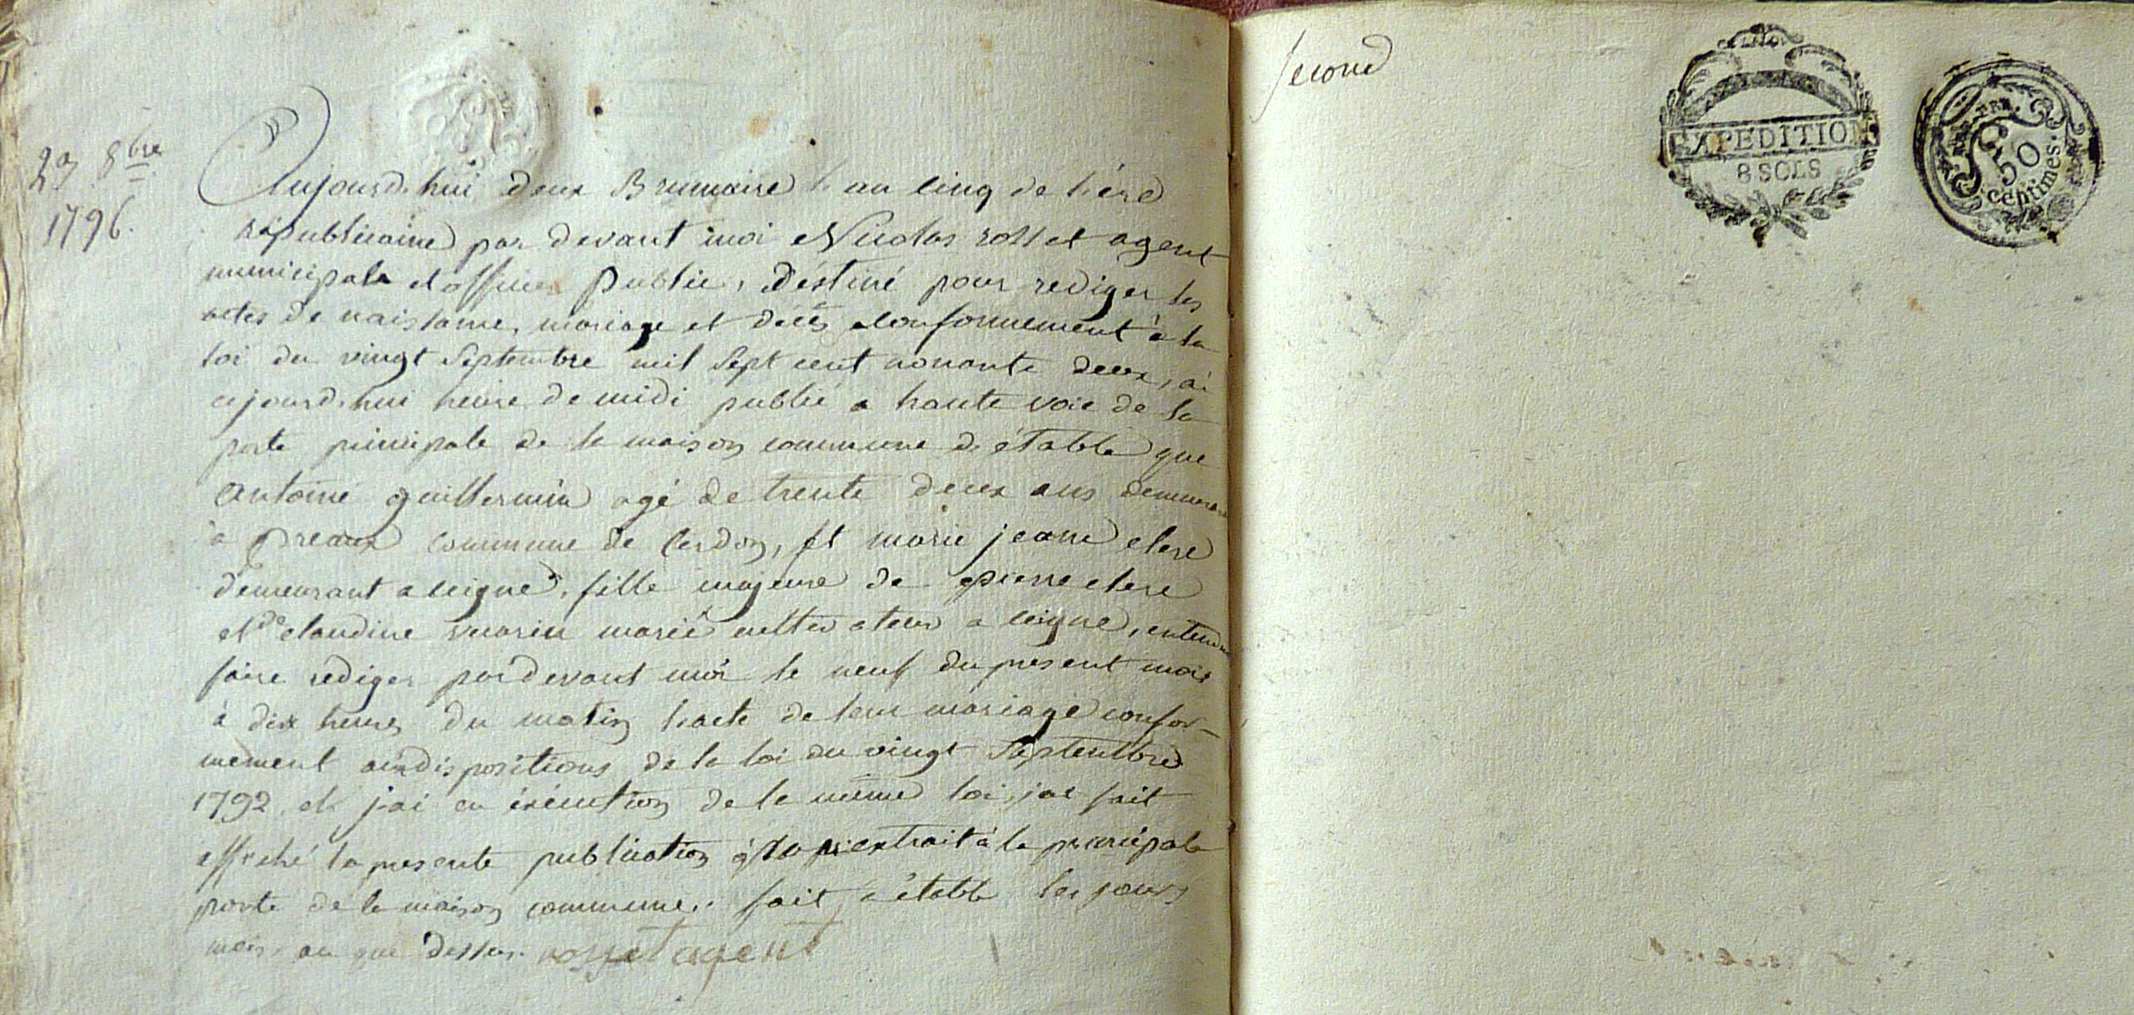 23 8bre
1796.
Aujourd'hui deux Brumaire l'an cinq de l'ére
républicaine par devant moi Nicolas rosset agent
municipale et officier Public, déstiné pour rediger les
actes de naissance, mariage et décès conformement à la
loi du vingt septembre mil sept cent nonante deux, ai
cejourd'hui heure de midi publié a haute voie de la
porte principale de la maison commune d'étable que
antoine guillermin agé de trente deux ans demeurant
à preaux commune de Cerdon, et marie jeanne clerc
demeurant a leigne, fille majeure de pierre clerc
et de claudine vuarin marié cultivateur a leigne, entend
faire rediger pardevant moi le neuf du present mois
à dix heures du matin l'acte de leur mariage confor-
mement aux dispositions de la loi du vingt septembre
1792. et j'ai en éxécution de la même loi, j'ai fait
affiché la presente publication par extrait à la principale
porte de la maison commune. fait a étable les jours
mois, an que dessus. rosset agent
second
EXPEDITION
8 SOLS
50
centimes.